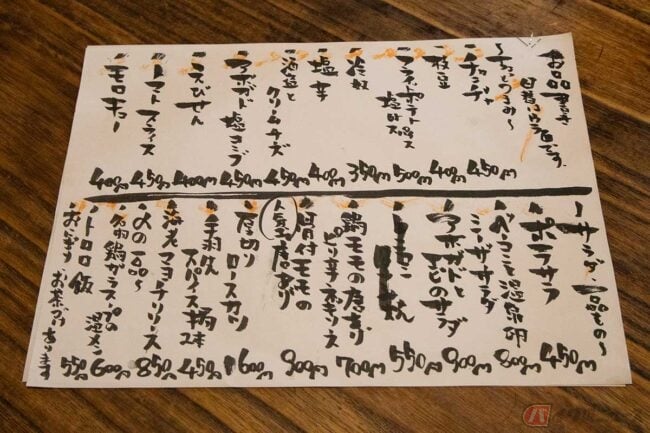 お品書き
日替はウラ面です。
〜ちょっとつまみ〜
チャンジャ 450円
枝豆 400円
フライドポテト 500円
冷奴 350円
塩辛 400円
酒盗と
クリームチーズ 450円
アボガド塩コンブ 450円
えびせん 400円
トマトスライス 450円
モロキュー 400円
〜サラダ 一品もの〜
ポテサラ 450円
ベーコンと温泉卵
シーザーサラダ 800円
アボガドと
エビのサラダ 900円
550円
鶏モモの唐あげ
ピリ辛ネギソース 700円
骨付モモの
唐あげ 900円
厚切り
ロースカツ 1600円
手羽焼
スパイス 2本 450円
海老マヨチリソース 850円
〆の一品〜
鶏ガラスープの温メン 600円
トロロ飯 550円
おにぎり お茶づけあります